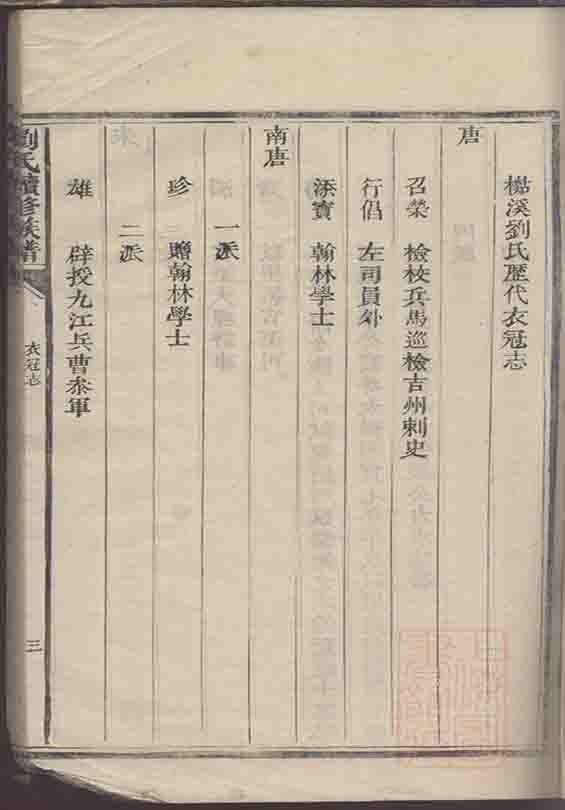 溪劉氏歷代衣冠志
唐
召榮 檢校兵馬巡檢吉州刺史
行倡 左司員外
添寶 翰林學士
南唐
一派
珍 贈翰林學士
二派
雄 辟授九江兵曹叅軍
劉氏續修族譜
衣冠志
三